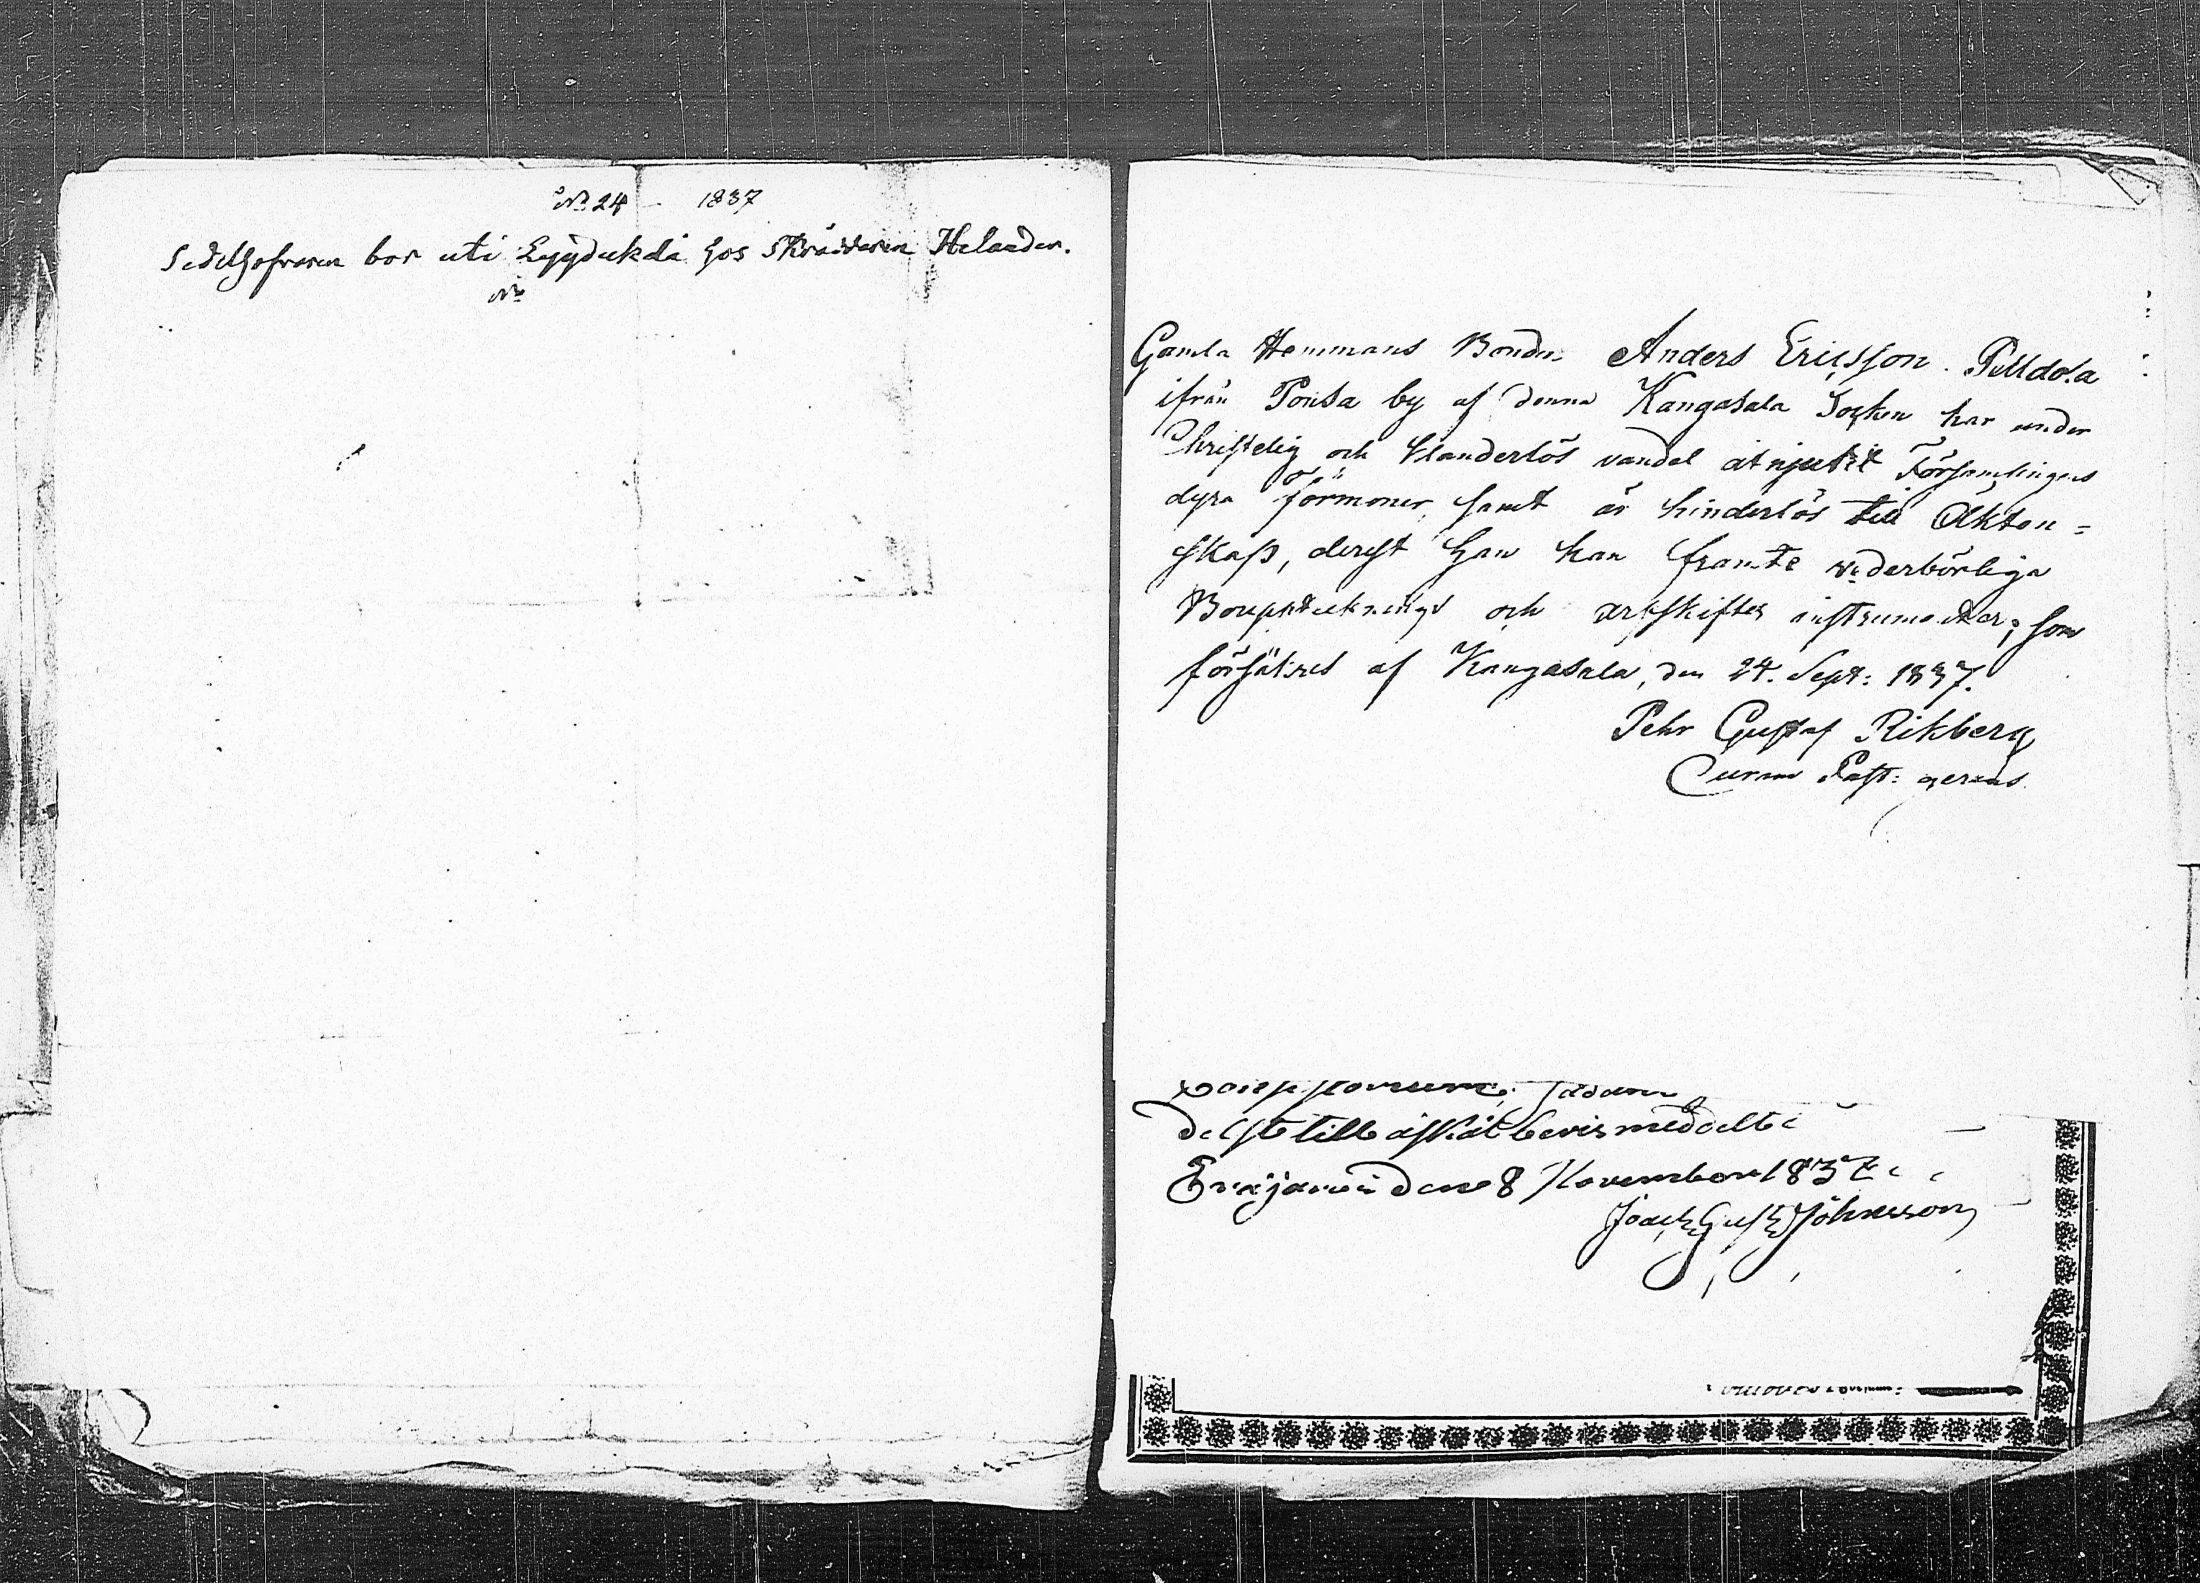 No 24 1837
Sedelhafvaren bor uti hos Skräddaren Helander.
No
Gamla Hemmans Bonden Anders Ericsson Pelldola
ifrån Ponsa by af denna Kangasala Socken har under
Christelig och klanderlös vandel åtnjutit Församlingens
dyra förmoner, samt är hinderlös till Äkten=
skap, derest han kan framte vederbörliga
Bouptecknings och arfskiftes instrumenter; som
försäkras af Kangasala, den 24. Sept: 1837.
Pehr Gustaf Rikberg
Curam Past: gerens
sådan
till äskat bevis meddelte
Eräjärvi den 8 November 1837
Joach Gust Johnsson